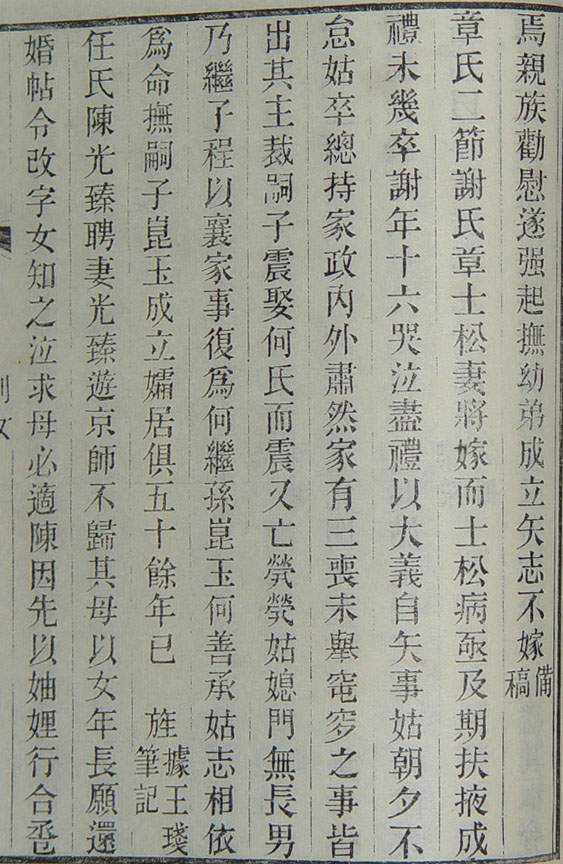 焉親族勸慰遂强起撫幼弟成立矢志不嫁備稿
章氏二節謝氏章士松妻將嫁而士松病亟及期扶掖成
禮未幾卒謝年十六哭泣盡禮以大義自矢事姑朝夕不
怠姑卒總持家政內外肅然家有三喪未舉窀穸之事皆
出其主裁嗣子震娶何氏而震又亡煢煢姑媳門無長男
乃繼子程以襄家事復爲何繼孫崑玉何善承姑志相依
爲命撫嗣子崑玉成立孀居俱五十餘年已 旌據王瑔筆記
任氏陳光臻聘妻光臻遊京師不歸其母以女年長願還
婚帖令改字女知之泣求母必適陳因先以妯娌行合巹
列女